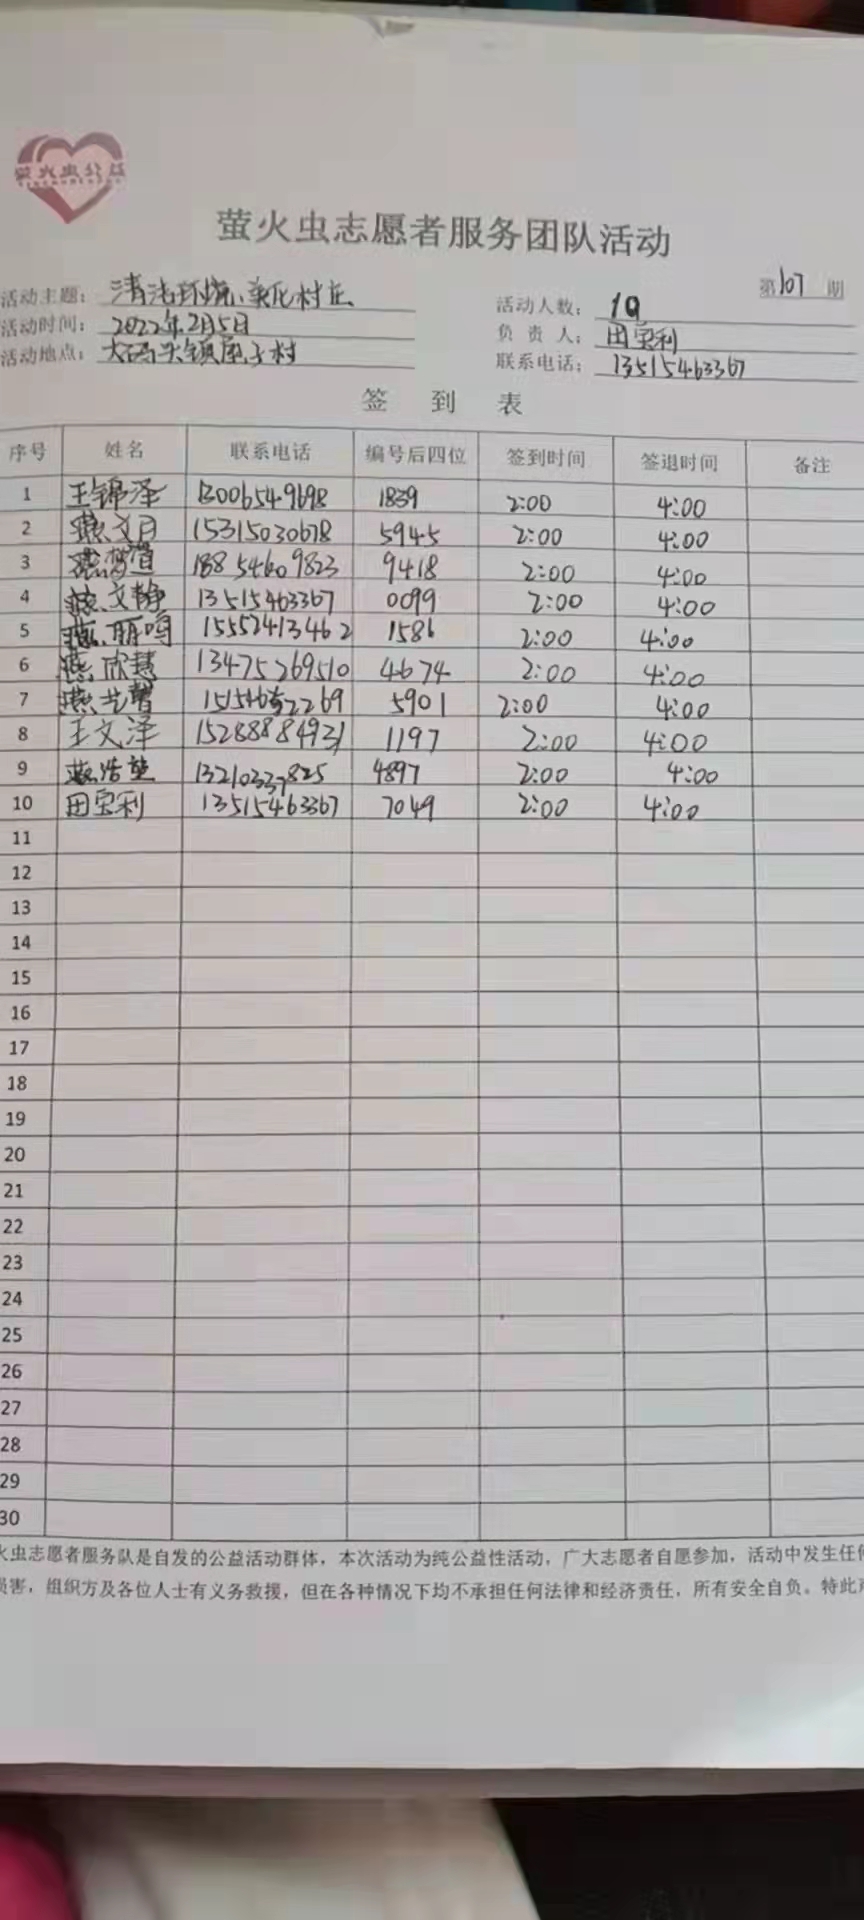 萤火虫公益
萤火虫志愿者服务团队活动
第107期
活动主题：清洁环境、美化村庄
活动人数：10
活动时间：2022年2月5日
负责人：田宝利
活动地点：大码头镇
联系电话：13515463367
签到表
序号 姓名 联系电话 编号后四位 签到时间 签退时间 备注
1 王锦泽 13006549698 1839 2:00 4:00
2 燕文月 15315030678 5945 2:00 4:00
3 18854609823 9418 2:00 4:00
4 燕文静 13515463367 0099 2:00 4:00
5 燕丽鸣 15552413462 1586 2:00 4:00
6 燕欣慧 13475269510 4674 2:00 4:00
7 5901 2:00 4:00
8 王文泽 15288884931 1197 2:00 4:00
9 13210337825 4897 2:00 4:00
10 田宝利 13515463367 7049 2:00 4:00
11
12
13
14
15
16
17
18
19
20
21
22
23
24
25
26
27
28
29
30
火虫志愿者服务队是自发的公益活动群体，本次活动为纯公益性活动，广大志愿者自愿参加，活动中发生任何
损害，组织方及各位人士有义务救援，但在各种情况下均不承担任何法律和经济责任，所有安全自负。特此